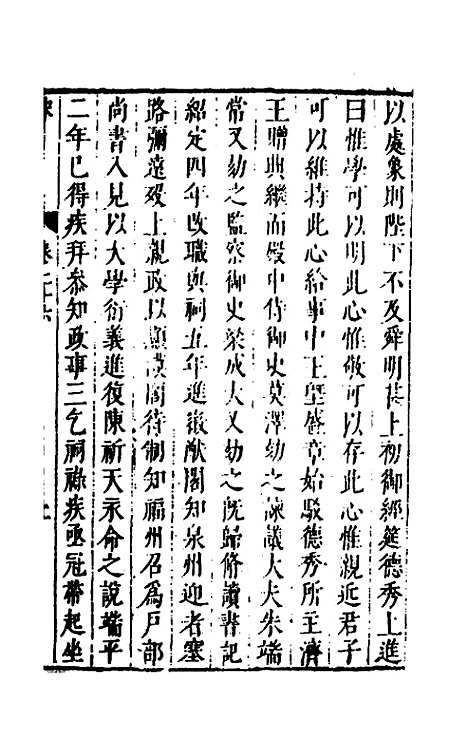 以處象則陛下不及舜明甚上初御經筵德秀上進
曰惟學可以明此心惟敬可以存此心惟親近君子
可以維持此心給事中王塈盛章始駁德秀所主濟
王贈典繼而殿中侍御史莫澤劾之諫議大夫朱端
常又劾之監察御史梁成大又劾之既歸修讀書記
紹定四年改職與祠五年進徽猷閣知泉州迎者塞
路彌遠歿上親政以顯謨閣待制知福州召爲戶部
尚書入見以大學衍義進復陳祈天永命之說端平
二年已得疾拜參知政事三乞祠祿疾亟冠帶起坐
卷二十六